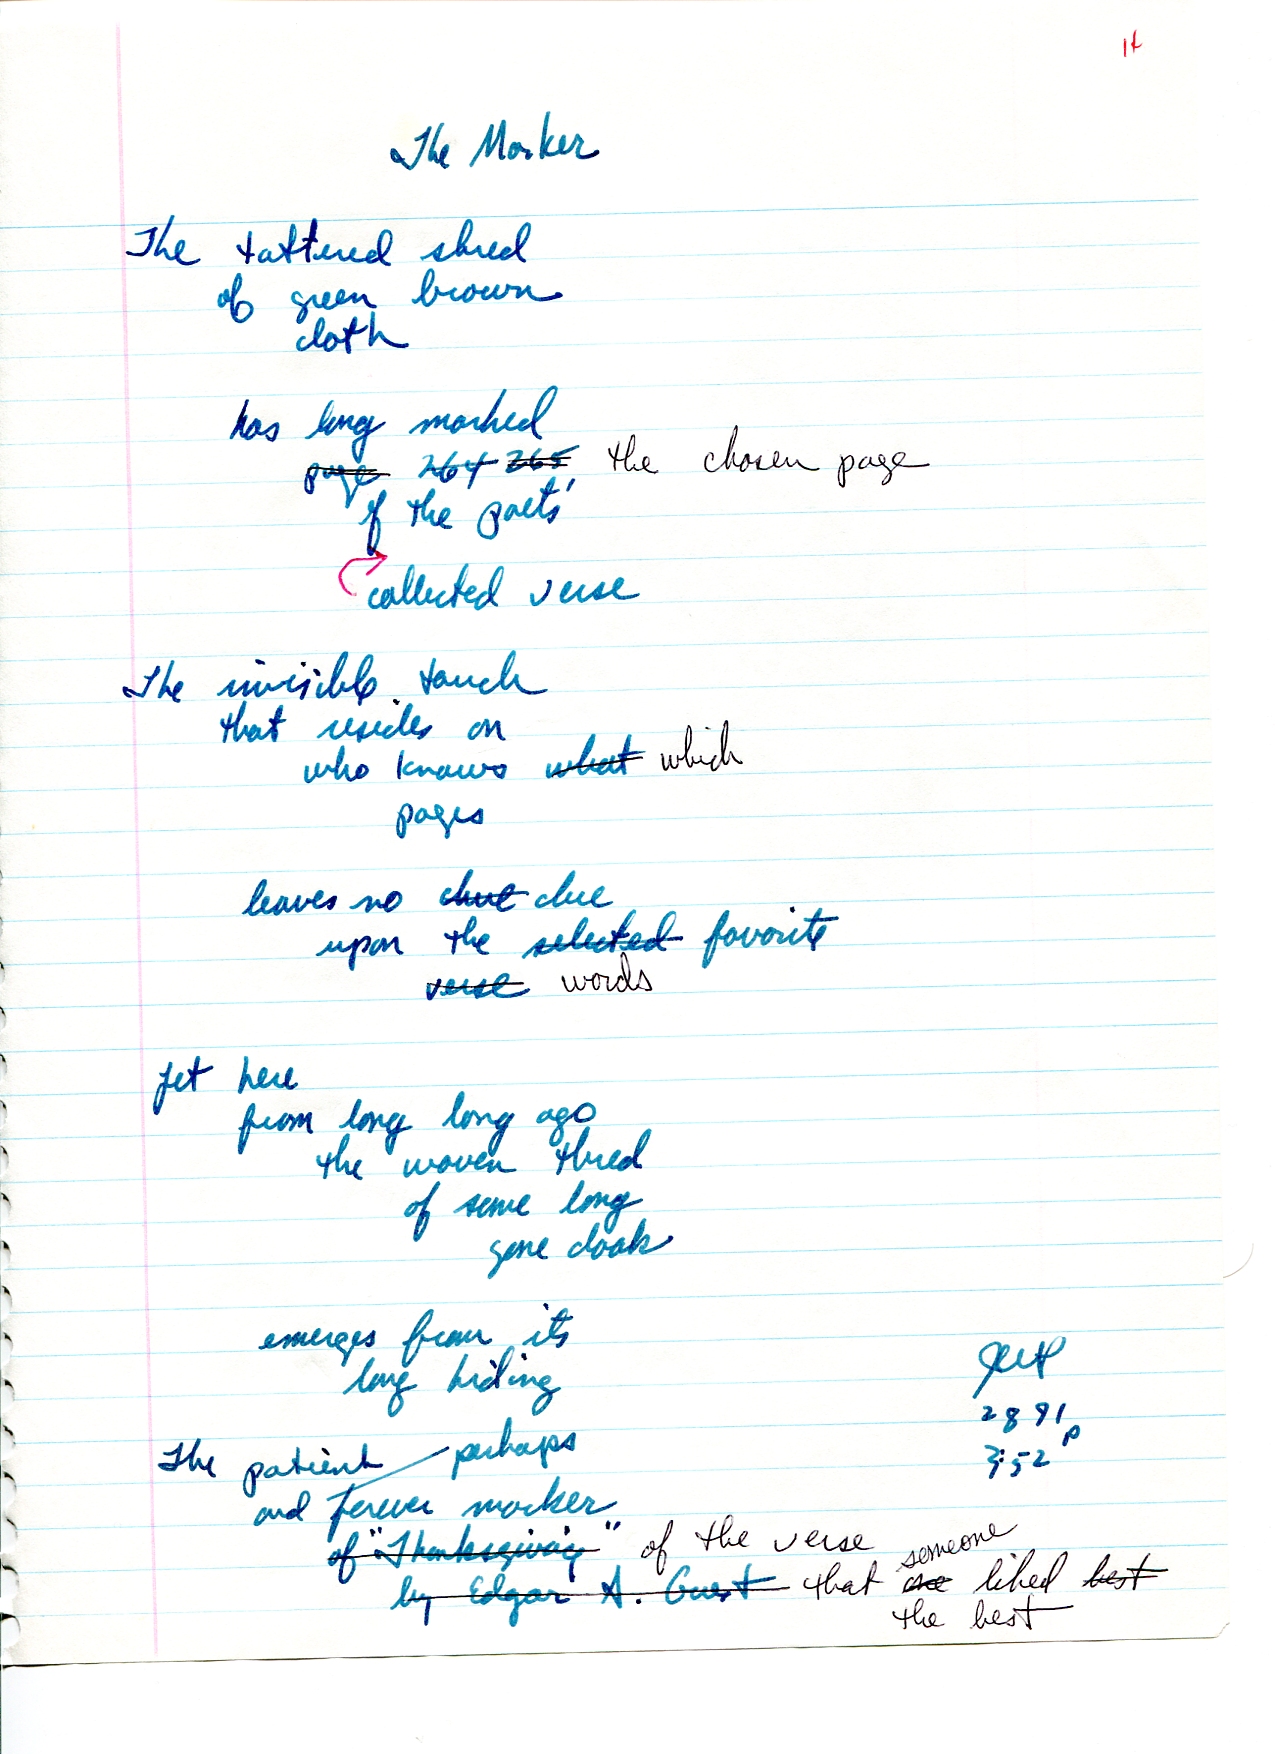 The Marker
The tattered shred
of green brown
cloth
has long marked
page 264 265 the chosen page
of the poets'
collected verse
The invisible touch
that resides on
who knows what which
pages
leaves no clue
upon the selected favorite
verse words
yet here
from long long ago
the woven thred
of some long
gone cloak
emerges from its
long hiding
The patient perhaps
and forever marker
of "Thanksgiving" of the verse
by Edgar A. Guest that one someone liked best
the best
2 8 91
3:52 P